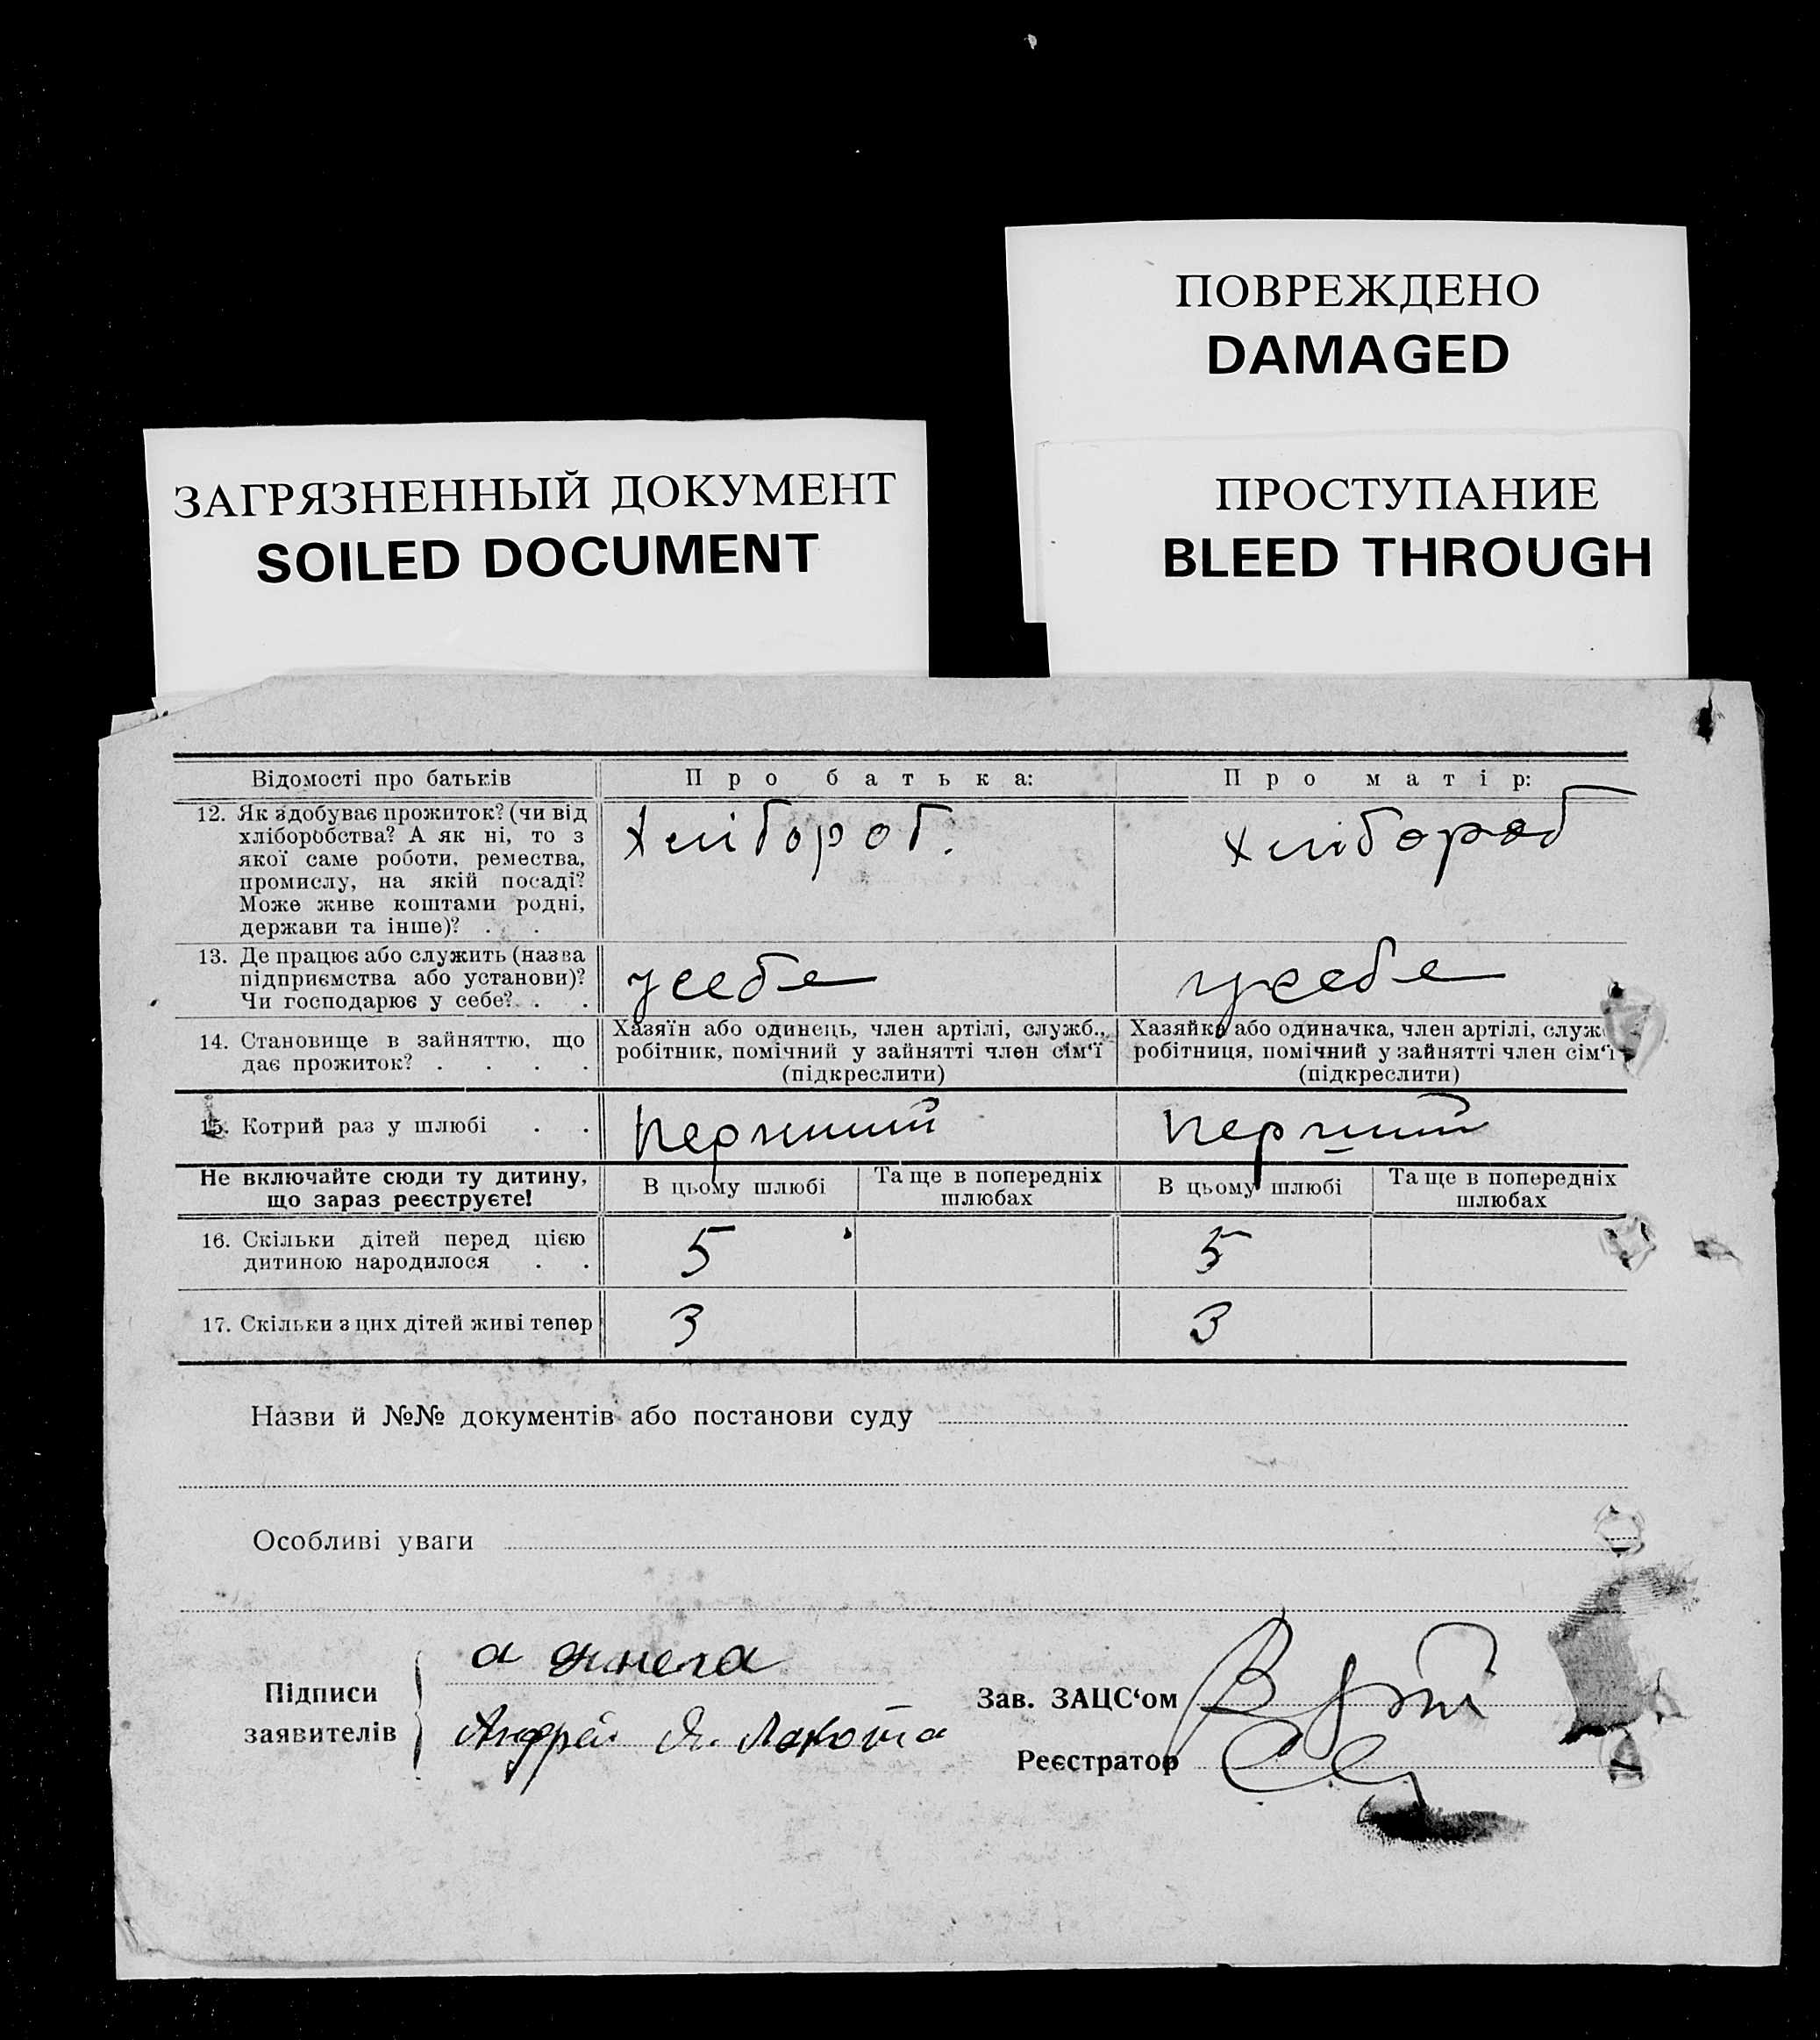 ПОВРЕЖДЕНО
DAMAGED
ЗАГРЯЗНЕННЫЙ ДОКУМЕНТ
SOILED DOCUMENT
ПРОСТУПАНИЕ
BLEED THROUGH
Відомості про батьків
Про батька:
Про матір:
12. Як здобуває прожиток? (чи від
хліборобства? А як ні, то з
якої саме роботи, ремества,
промислу, на якій посаді?
Може живе коштами родні,
держави та інше)? . .
Хлібороб.
хлібороб
13. Де працює або служить (назва
підприємства або установи)?
Чи господарює у себе? . .
у себе
у себе
14. Становище в зайняттю, що
дає прожиток? . . . .
Хазяїн або одинець, член артілі, служб.,
робітник, помічний у зайнятті член сім‘ї
(підкреслити)
Хазяйка або одиначка, член артілі, служ
робітниця, помічний у зайнятті член сім‘ї
(підкреслити)
15. Котрий раз у шлюбі . .
перший
перший
Не включайте сюди ту дитину,
що зараз реєструєте!
В цьому шлюбі
Та ще в попередніх
шлюбах
В цьому шлюбі
Та ще в попередніх
шлюбах
16. Скільки дітей перед цією
дитиною народилося . .
5
5
17. Скільки з цих дітей живі тепер
3
3
Назви й №№ документів або постанови суду
Особливі уваги
Підписи
заявителів
а
Андрей Я.
Зав. ЗАЦС‘ом
Реєстратор